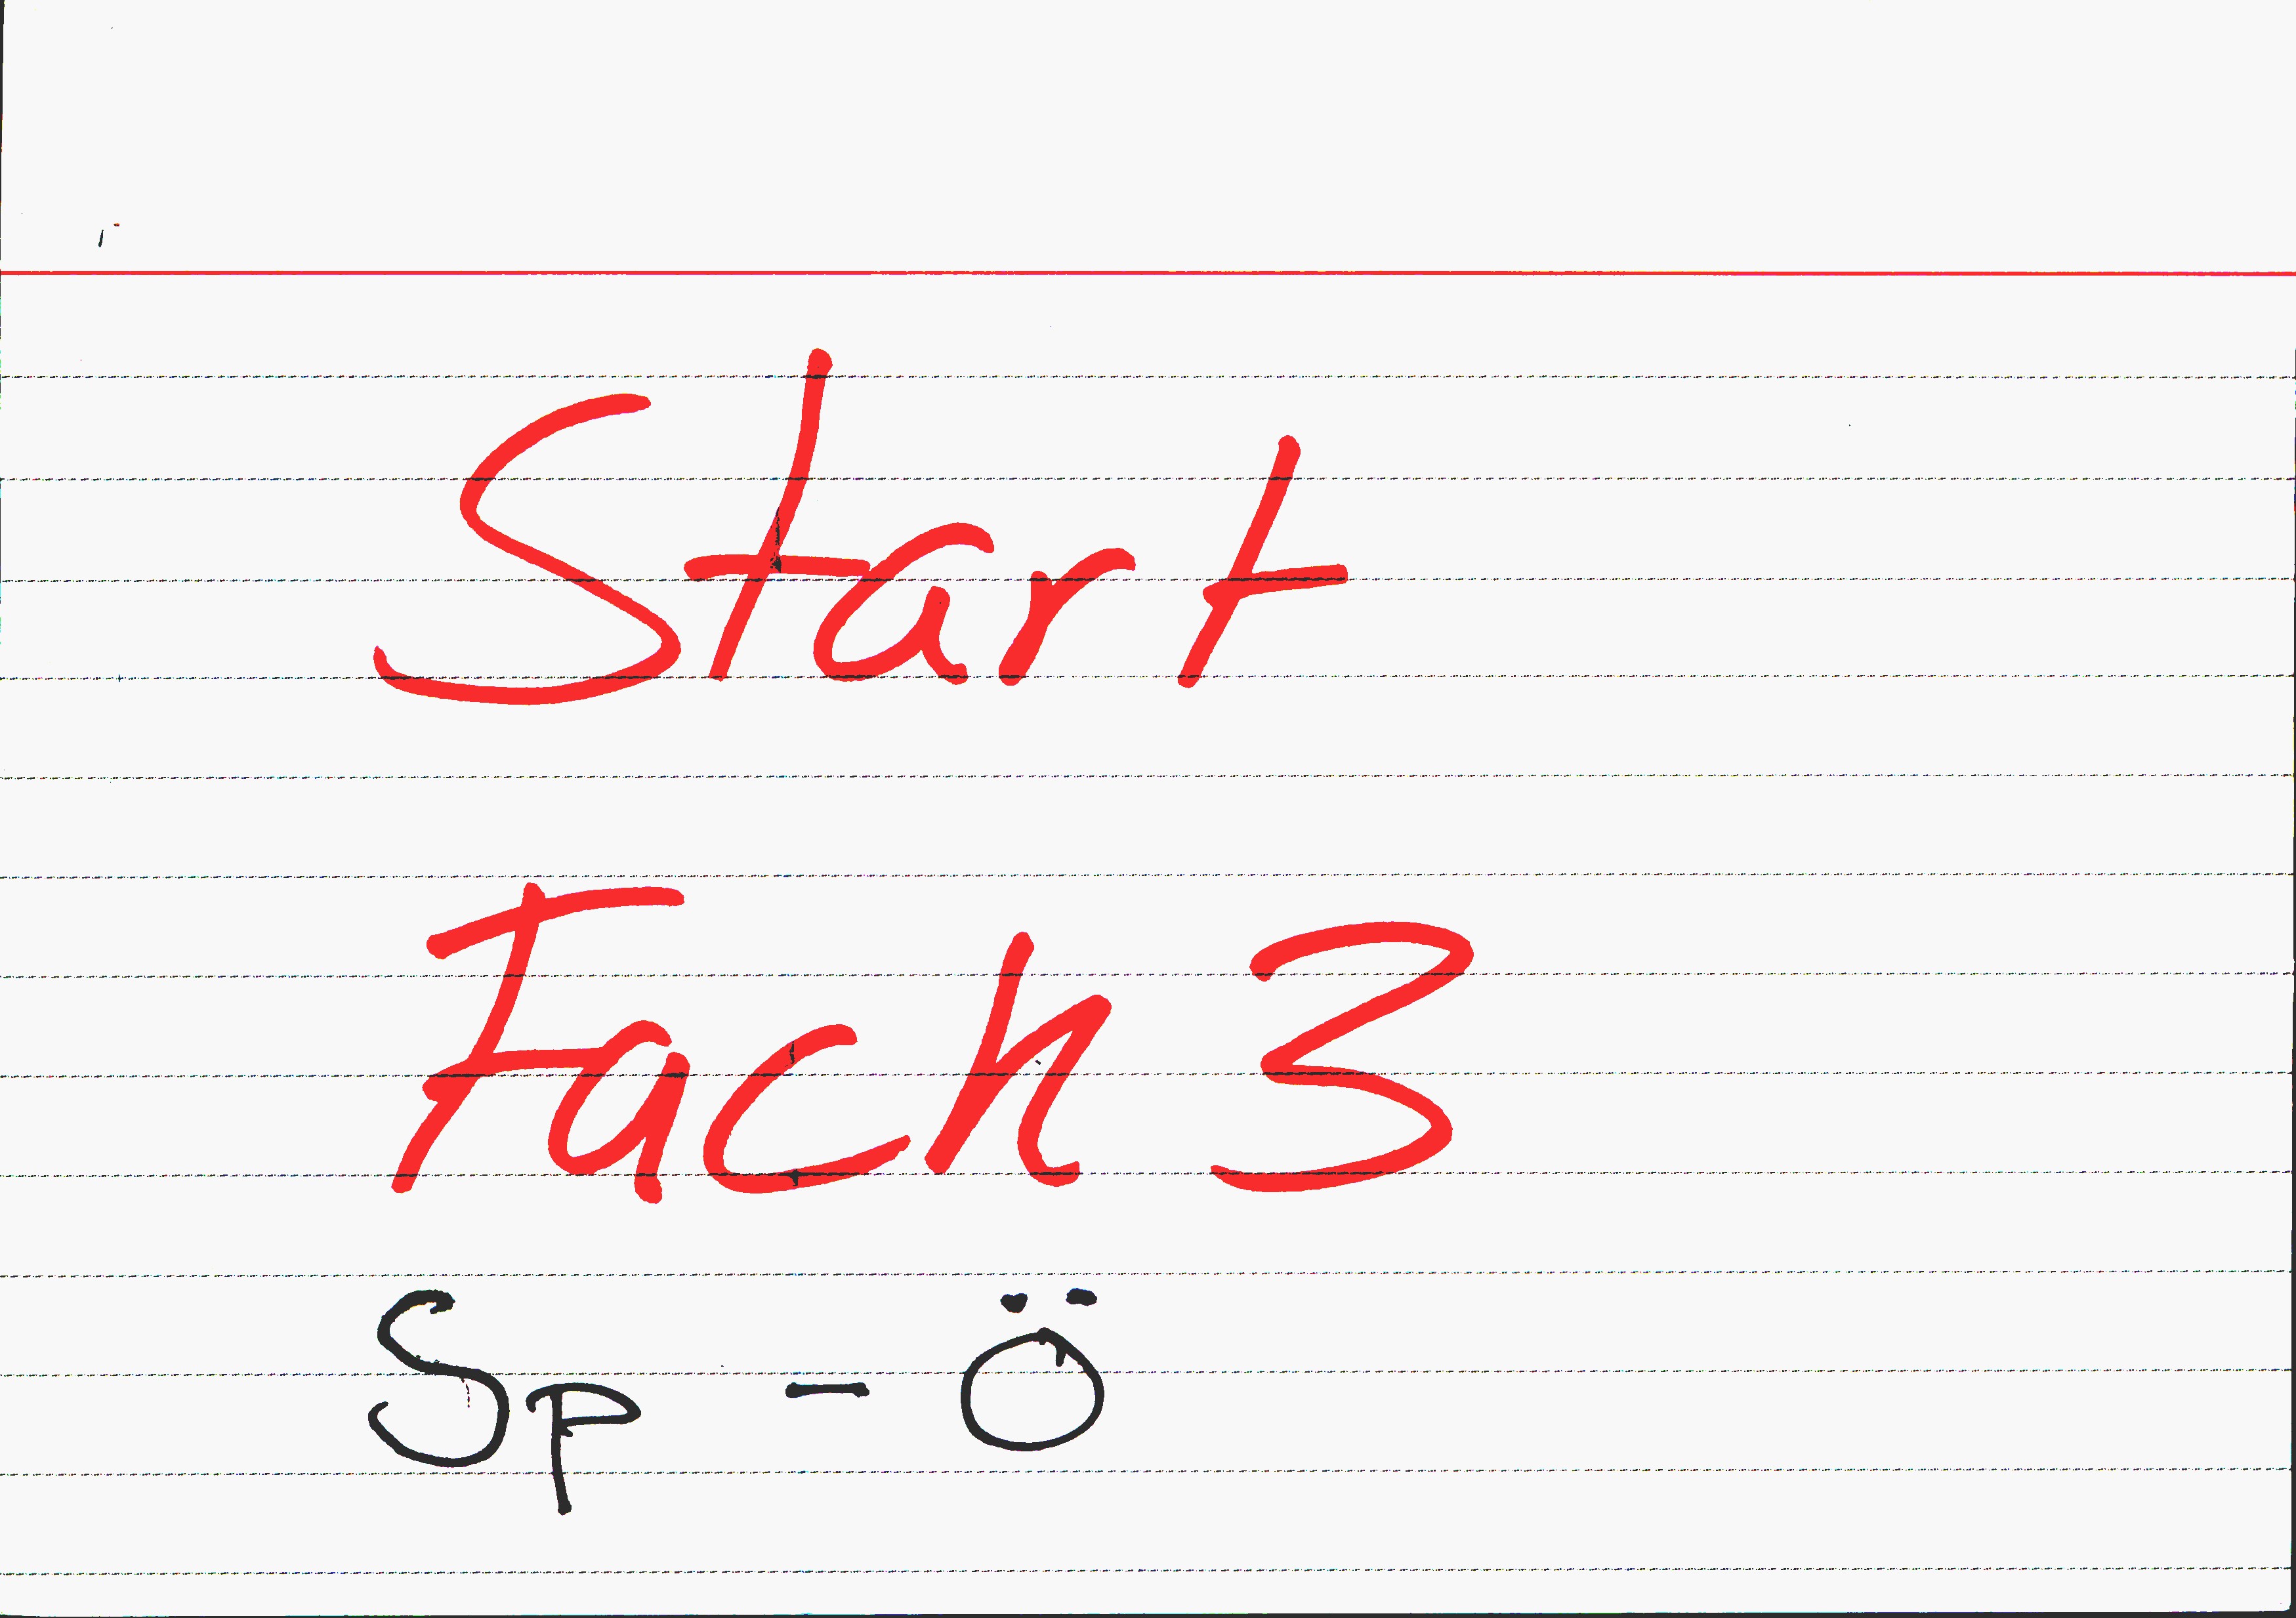 Start
Fach 3
Sp - Ö